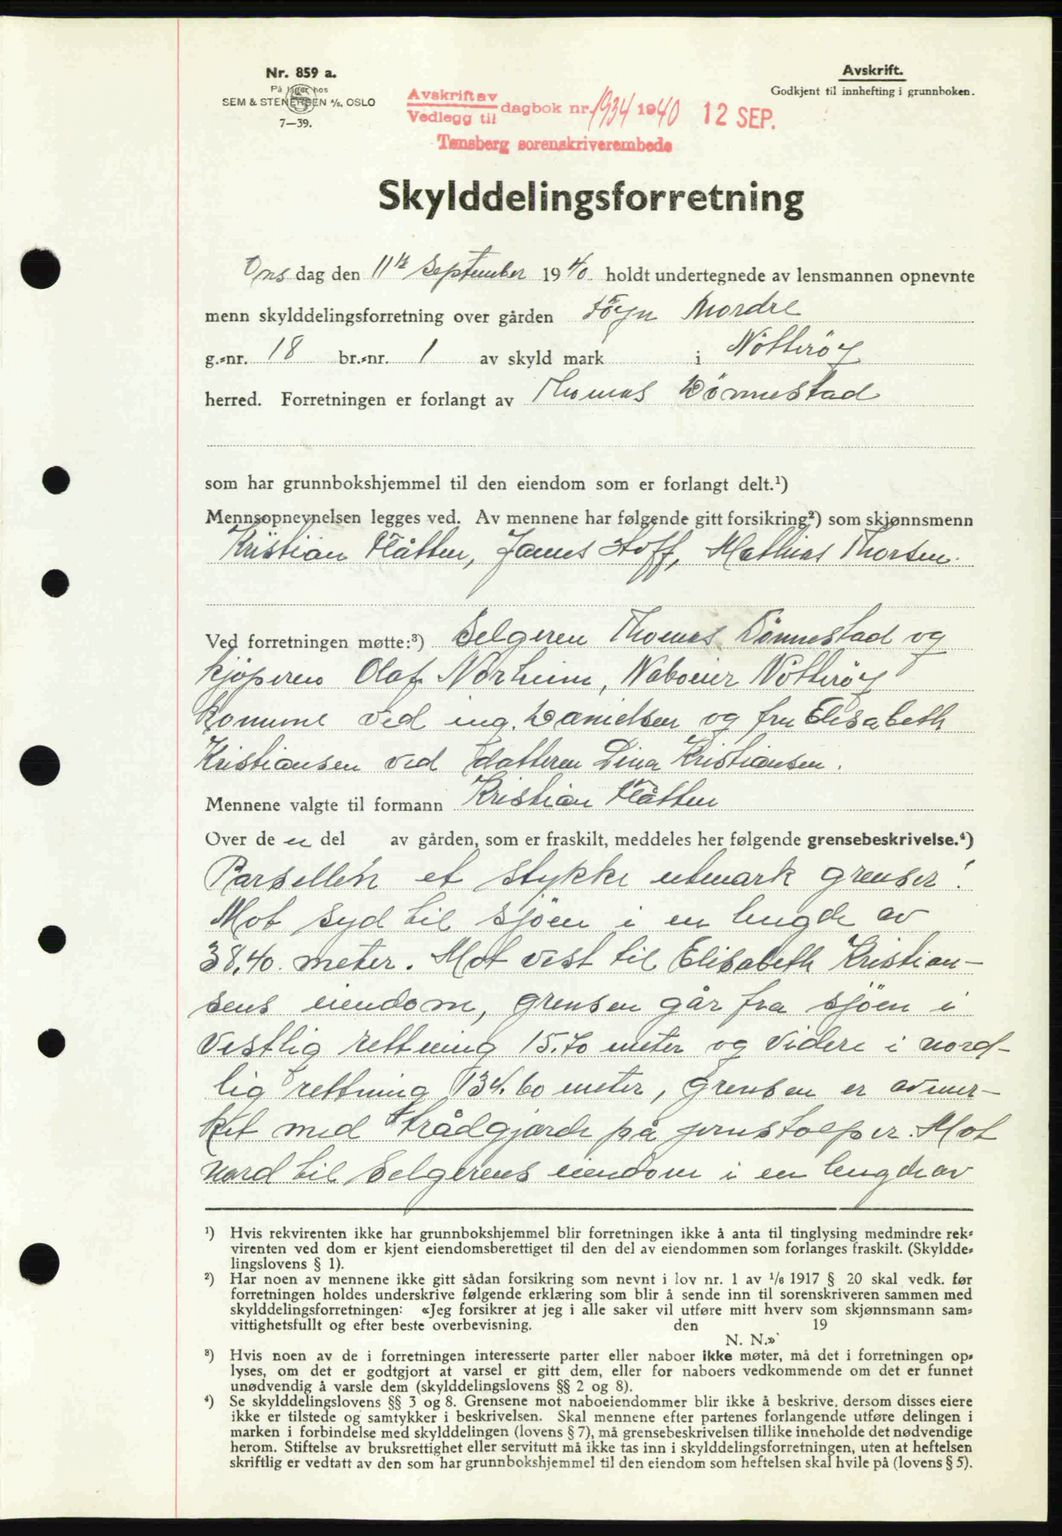 Nr. 859 a.
På lager hos
SEM & STENERSEN A/S. OSLO
7—39.
Avskrift.
Godkjent til innhefting i grunnboken.
Avskrift av
Vedlegg til dagbok nr. 1934 1940 12 SEP.
Tønsberg sorenskriverembede
Skylddelingsforretning
Onsdag den 11te September 1940 holdt undertegnede av lensmannen opnevnte
menn skylddelingsforretning over gården Föyn Nordre
g.-nr. 18 br.-nr. 1 av skyld mark i Nötteröy
herred. Forretningen er forlangt av Thomas Dönnestad
som har grunnbokshjemmel til den eiendom som er forlangt delt.¹)
Mennsopnevnelsen legges ved. Av mennene har følgende gitt forsikring²) som skjønnsmenn
Kristian Flåtten, James Hoff, Mathias Thorsen.
Ved forretningen møtte:³) Selgeren Thomas Dönnestad og
kjöperen Olaf Norheim, Naboeier Nötteröy
komune ved ing. Danielsen og fru Elisabeth
Kristiansen ved datteren Dina Kristiansen.
Mennene valgte til formann Kristian Flåtten
Over de en del av gården, som er fraskilt, meddeles her følgende grensebeskrivelse.⁴)
Parsellen et stykke utmark grenser:
Mot syd til sjöen i en lengde av
38,40 meter. Mot vest til Elisabeth Kristian-
sens eiendom, grensen går fra sjöen i
vestlig rettning 15.70 meter og videre i nord-
lig rettning 134.60 meter, grensen er avmer-
ket med trådgjerde på jernstolper. Mot
nord til Selgerens eiendom i en lengde av
¹) Hvis rekvirenten ikke har grunnbokshjemmel blir forretningen ikke å anta til tinglysing medmindre rek-
virenten ved dom er kjent eiendomsberettiget til den del av eiendommen som forlanges fraskilt. (Skyldde-
lingslovens § 1).
²) Har noen av mennene ikke gitt sådan forsikring som nevnt i lov nr. 1 av 1/6 1917 § 20 skal vedk. før
forretningen holdes underskrive følgende erklæring som blir å sende inn til sorenskriveren sammen med
skylddelingsforretningen: «Jeg forsikrer at jeg i alle saker vil utføre mitt hverv som skjønnsmann sam-
vittighetsfullt og efter beste overbevisning. den 19
N. N.»
³) Hvis noen av de i forretningen interesserte parter eller naboer ikke møter, må det i forretningen op-
lyses, om det er godtgjort at varsel er gitt dem, eller for naboers vedkommende om det er funnet
unødvendig å varsle dem (skylddelingslovens §§ 2 og 8).
⁴) Se skylddelingslovens §§ 3 og 8. Grensene mot naboeiendommer blir ikke å beskrive, dersom disses eiere
ikke er tilstede og samtykker i beskrivelsen. Skal mennene efter partenes forlangende utføre delingen i
marken i forbindelse med skylddelingen (lovens § 7), må grensebeskrivelsen tillike inneholde det nødvendige
herom. Stiftelse av bruksrettighet eller servitutt må ikke tas inn i skylddelingsforretningen, uten at heftelsen
skriftlig er vedtatt av den som har grunnbokshjemmel til den eiendom som heftelsen skal hvile på (lovens § 5).